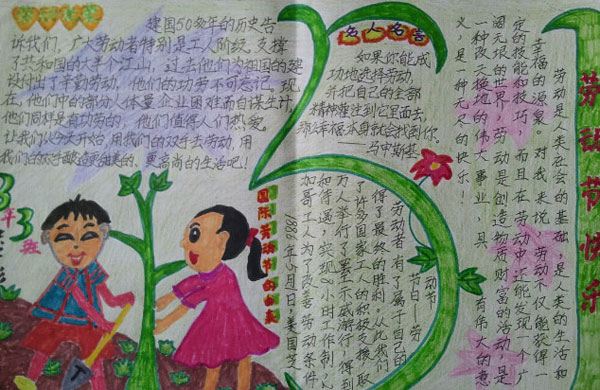 建国50多年的历史告
诉我们，广大劳动者特别是工人阶级，支撑
了共和国的大半个江山，过去他们为祖国的建
设付出了辛勤劳动，他们的功劳不可忘记，现
在，他们中的部分人体量企业困难而自谋生计，
他们同样是有功劳的，他们值得人们热爱，
让我们从今天开始，用我们的双手去劳动，用
我们的双手创造更加美的、更高尚的生活吧！
名人名言
如果你能成
功地选择劳动，
并把自己的全部
精神灌注到它里面去，
那么幸福本身就会找到你
——乌申斯基
劳动节快乐
劳动是人类社会的基础，是人类的生活和
幸福的源泉。对我来说，劳动不仅能获得一
定的技能和技巧，而且在劳动中还能发现一个广
阔无垠的世界，劳动是创造物质财富的活动，是
一种改天换地的伟大事业，具有伟大的意
义，是一种无尽的快乐……
国际劳动节的由来
1886年5月1日，美国芝
加哥工人为了改善劳动条件
和待遇，实现8小时工作制，
万人举行了罢工示威游行，得到
了许多国家工人的积极支援，取
得了最终的胜利。从此我们
劳动者有了属于自己的
节日——劳
动节
3年3班